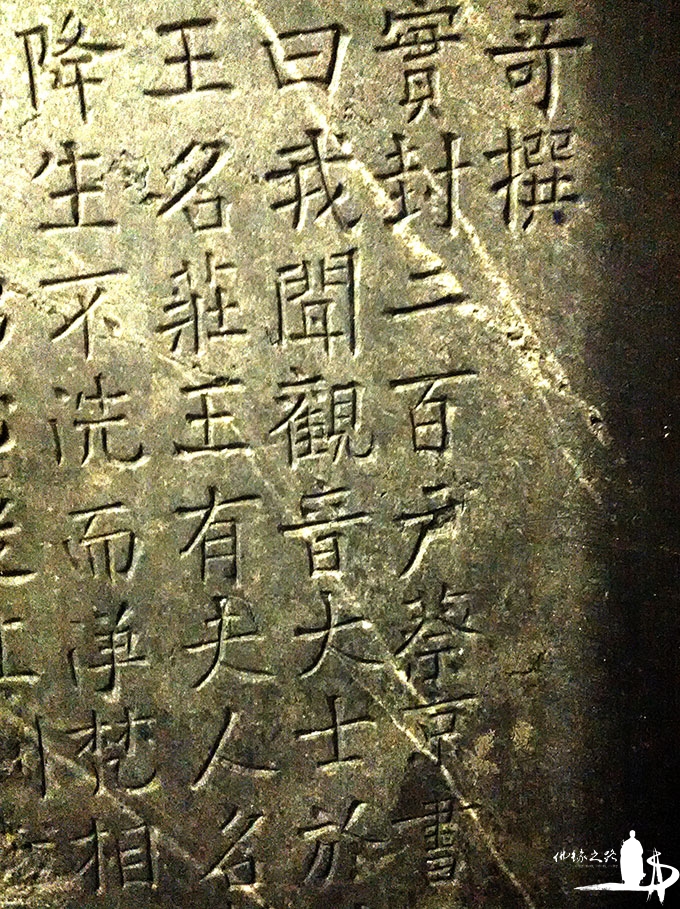 奇撰
實封二百戶蔡京書
曰我聞觀音大士於
王名莊王有夫人名
降生不洗而淨梵相
佛缘之路